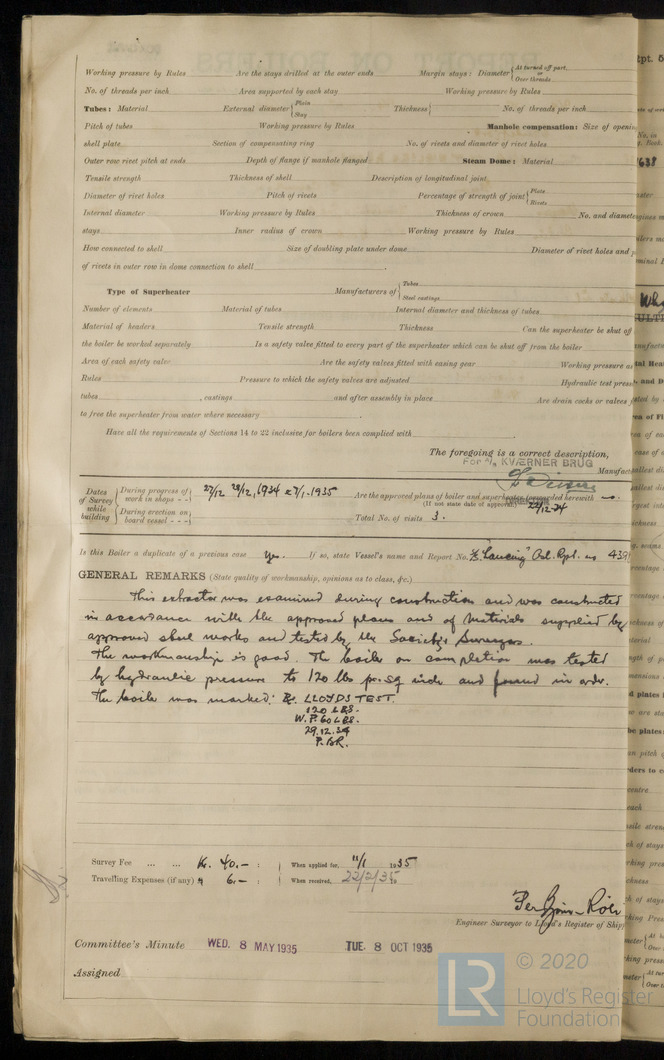 Working pressure by Rules Are the stays drilled at the outer ends Margin stays: Diameter { At turned off part, or Over threads
No. of threads per inch Area supported by each stay Working pressure by Rules
Tubes: Material External diameter { Plain Stay Thickness { No. of threads per inch
Pitch of tubes Working pressure by Rules Manhole compensation: Size of openi
shell plate Section of compensating ring No. of rivets and diameter of rivet holes
Outer row rivet pitch at ends Depth of flange if manhole flanged Steam Dome: Material
Tensile strength Thickness of shell Description of longitudinal joint
Diameter of rivet holes Pitch of rivets Percentage of strength of joint { Plate Rivets
Internal diameter Working pressure by Rules Thickness of crown No. and diamete
stays Inner radius of crown Working pressure by Rules
How connected to shell Size of doubling plate under dome Diameter of rivet holes and p
of rivets in outer row in dome connection to shell
Type of Superheater Manufacturers of { Tubes Steel castings
Number of elements Material of tubes Internal diameter and thickness of tubes
Material of headers Tensile strength Thickness Can the superheater be shut of
the boiler be worked separately Is a safety valve fitted to every part of the superheater which can be shut off from the boiler
Area of each safety valve Are the safety valves fitted with easing gear Working pressure as
Rules Pressure to which the safety valves are adjusted Hydraulic test press
tubes , castings and after assembly in place Are drain cocks or valves
to free the superheater from water where necessary
Have all the requirements of Sections 14 to 22 inclusive for boilers been complied with
The foregoing is a correct description,
For A/S KVÆRNER BRUG
Manufac
Dates of Survey while building { During progress of work in shops - - } 27/12 29/12, 1934 & 7/1 - 1935 Are the approved plans of boiler and superheater forwarded herewith no.
(If not state date of approval.) 22/12-34
{ During erection on board vessel - - - } Total No. of visits 3.
Is this Boiler a duplicate of a previous case Yes. If so, state Vessel's name and Report No. "Lancing" Osl. Rpt. no 439
GENERAL REMARKS (State quality of workmanship, opinions as to class, &c.)
This extractor was examined during construction and was constructed
in accordance with the approved plans and of materials supplied by
approved steel works and tested by the Society's Surveyors.
The workmanship is good. The boiler on completion was tested
by hydraulic pressure to 120 lbs pr. sq inch and found in order.
The boiler was marked: LLOYDS TEST.
120 LBS.
W.P. 60 LBS.
29.12.34
P.BR.
Survey Fee ... ... Kr. 40.- : } When applied for, 11/1 1935
Travelling Expenses (if any) " 6.- : } When received, 22/2/35
Engineer Surveyor to Lloyd's Register of Ship
Committee's Minute WED. 8 MAY 1935 TUE. 8 OCT 1935
Assigned
LR © 2020
Lloyd's Register
Foundation